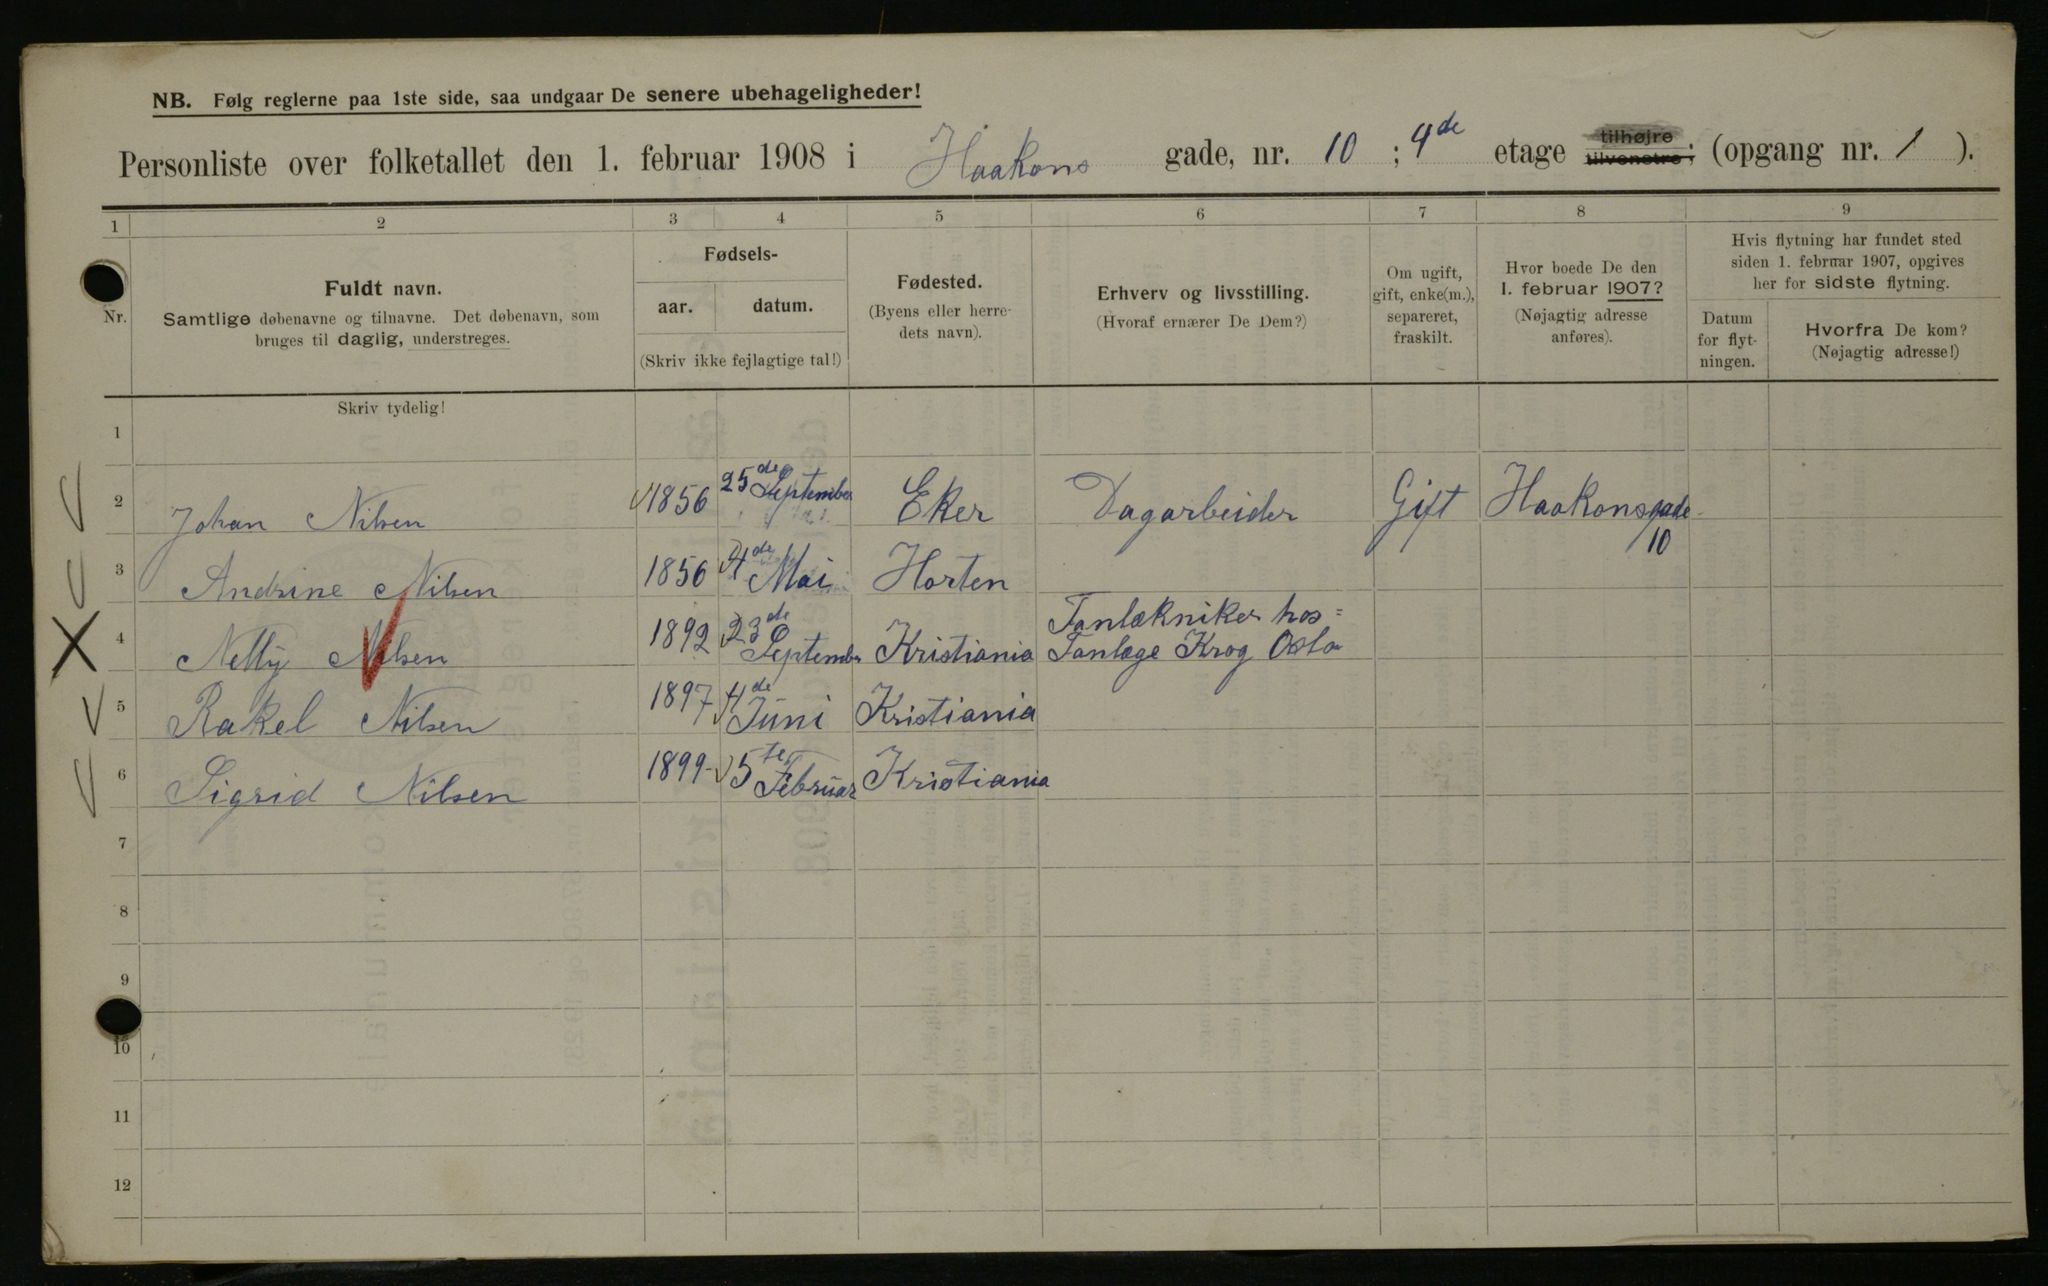 NB. Følg reglerne paa 1ste side, saa undgaar De senere ubehageligheder!
Personliste over folketallet den 1. februar 1908 i Haakons gade, nr. 10 ; 4de etage tilhøjre tilvenstre; (opgang nr. 1 ).
1 2 3 4 5 6 7 8 9
Nr.
Fuldt navn.
Samtlige døbenavne og tilnavne. Det døbenavn, som
bruges til daglig, understreges.
Fødsels-
aar. datum.
(Skriv ikke fejlagtige tal!)
Fødested.
(Byens eller herre-
dets navn).
Erhverv og livsstilling.
(Hvoraf ernærer De Dem?)
Om ugift,
gift, enke(m.),
separeret,
fraskilt.
Hvor boede De den
1. februar 1907?
(Nøjagtig adresse
anføres).
Hvis flytning har fundet sted
siden 1. februar 1907, opgives
her for sidste flytning.
Datum
for flyt-
ningen.
Hvorfra De kom?
(Nøjagtig adresse!)
Skriv tydelig!
1
2 Johan Nilsen 1856 25de September Eker Dagarbeider Gift Haakonsgade
10
3 Andrine Nilsen 1856 4de Mai Horten
4 Nelly Nilsen 1892 23de September Kristiania Tanlækniker hos=
Tanlæge Krog Oslo
5 Rakel Nilsen 1897 4de Juni Kristiania
6 Sigrid Nilsen 1899 5te Februar Kristiania
7
8
9
10
11
12